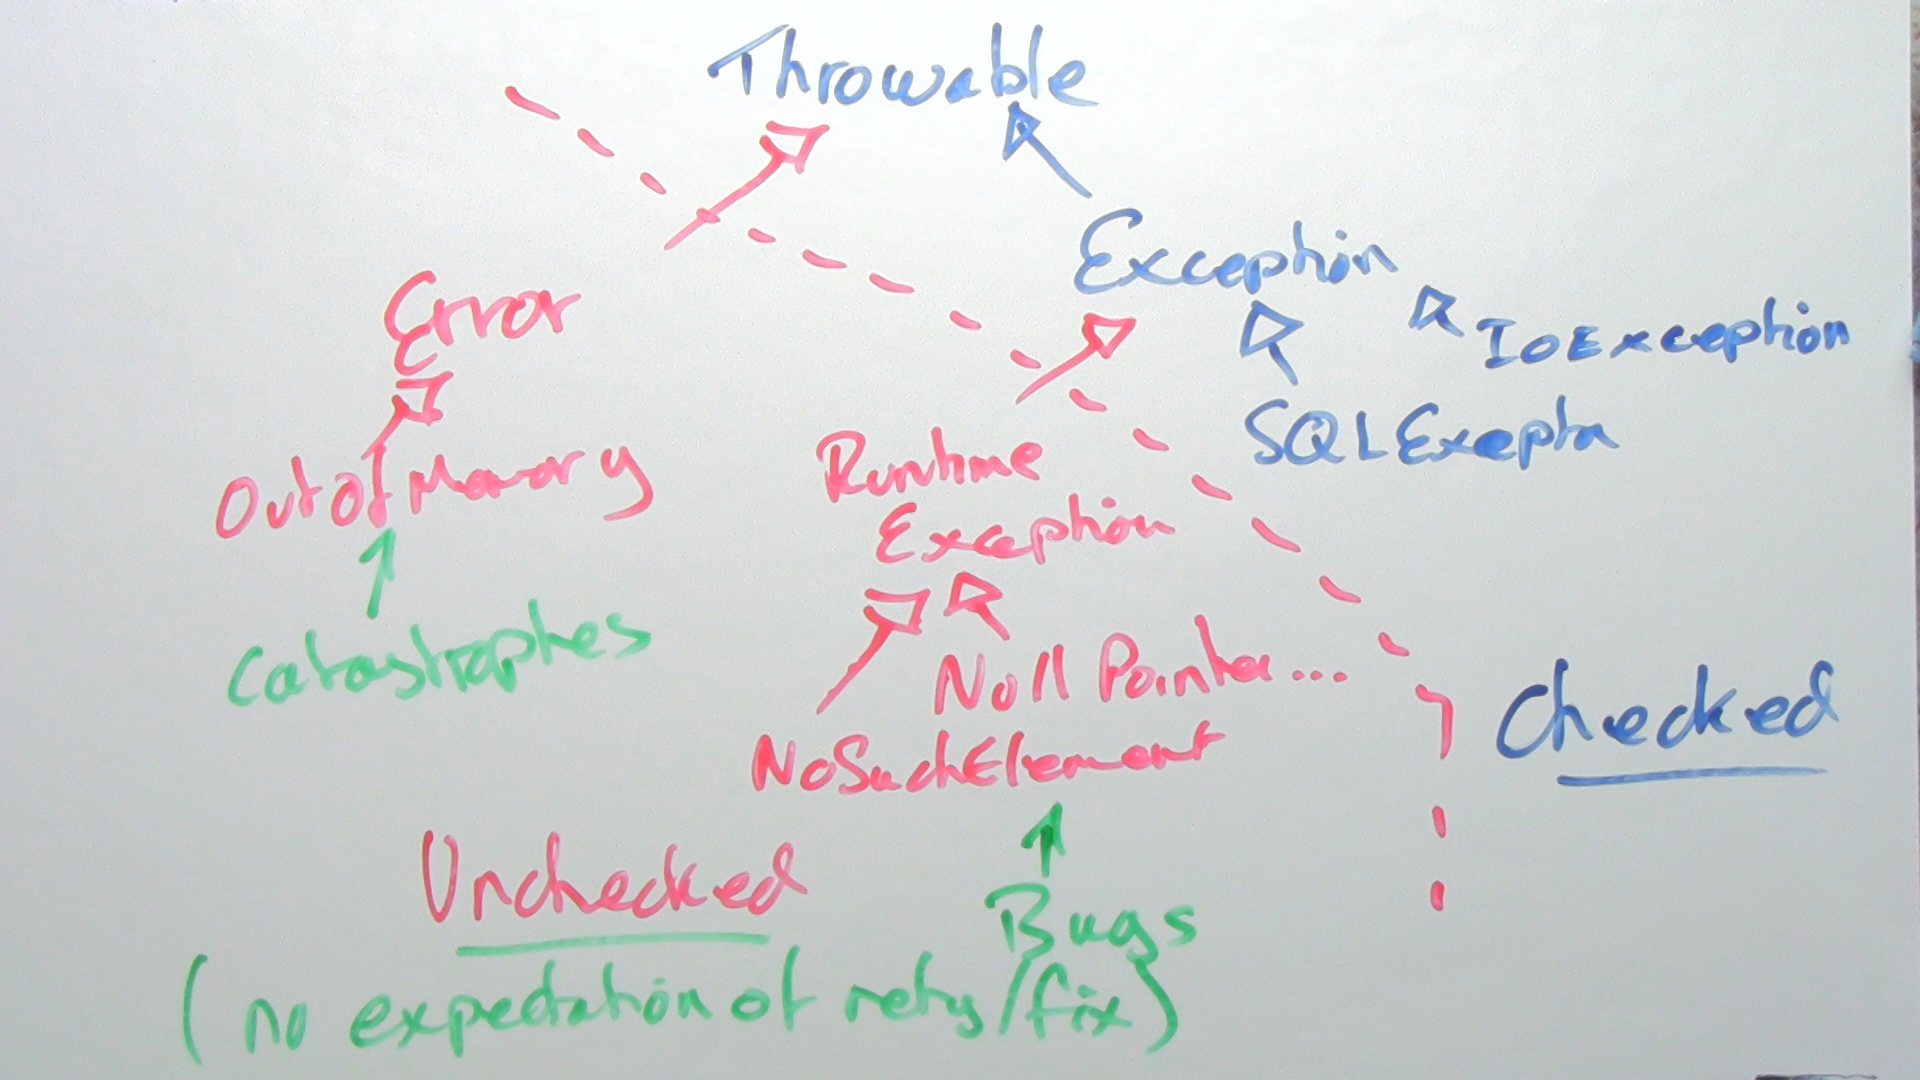 Throwable
Exception
Error
IOException
SQLExcepta
OutOfMemory
Runtime
Exception
Catastrophes
Null Pointer...
NoSuchElement
Checked
Unchecked
Bugs
(no expectation of retry/fix)